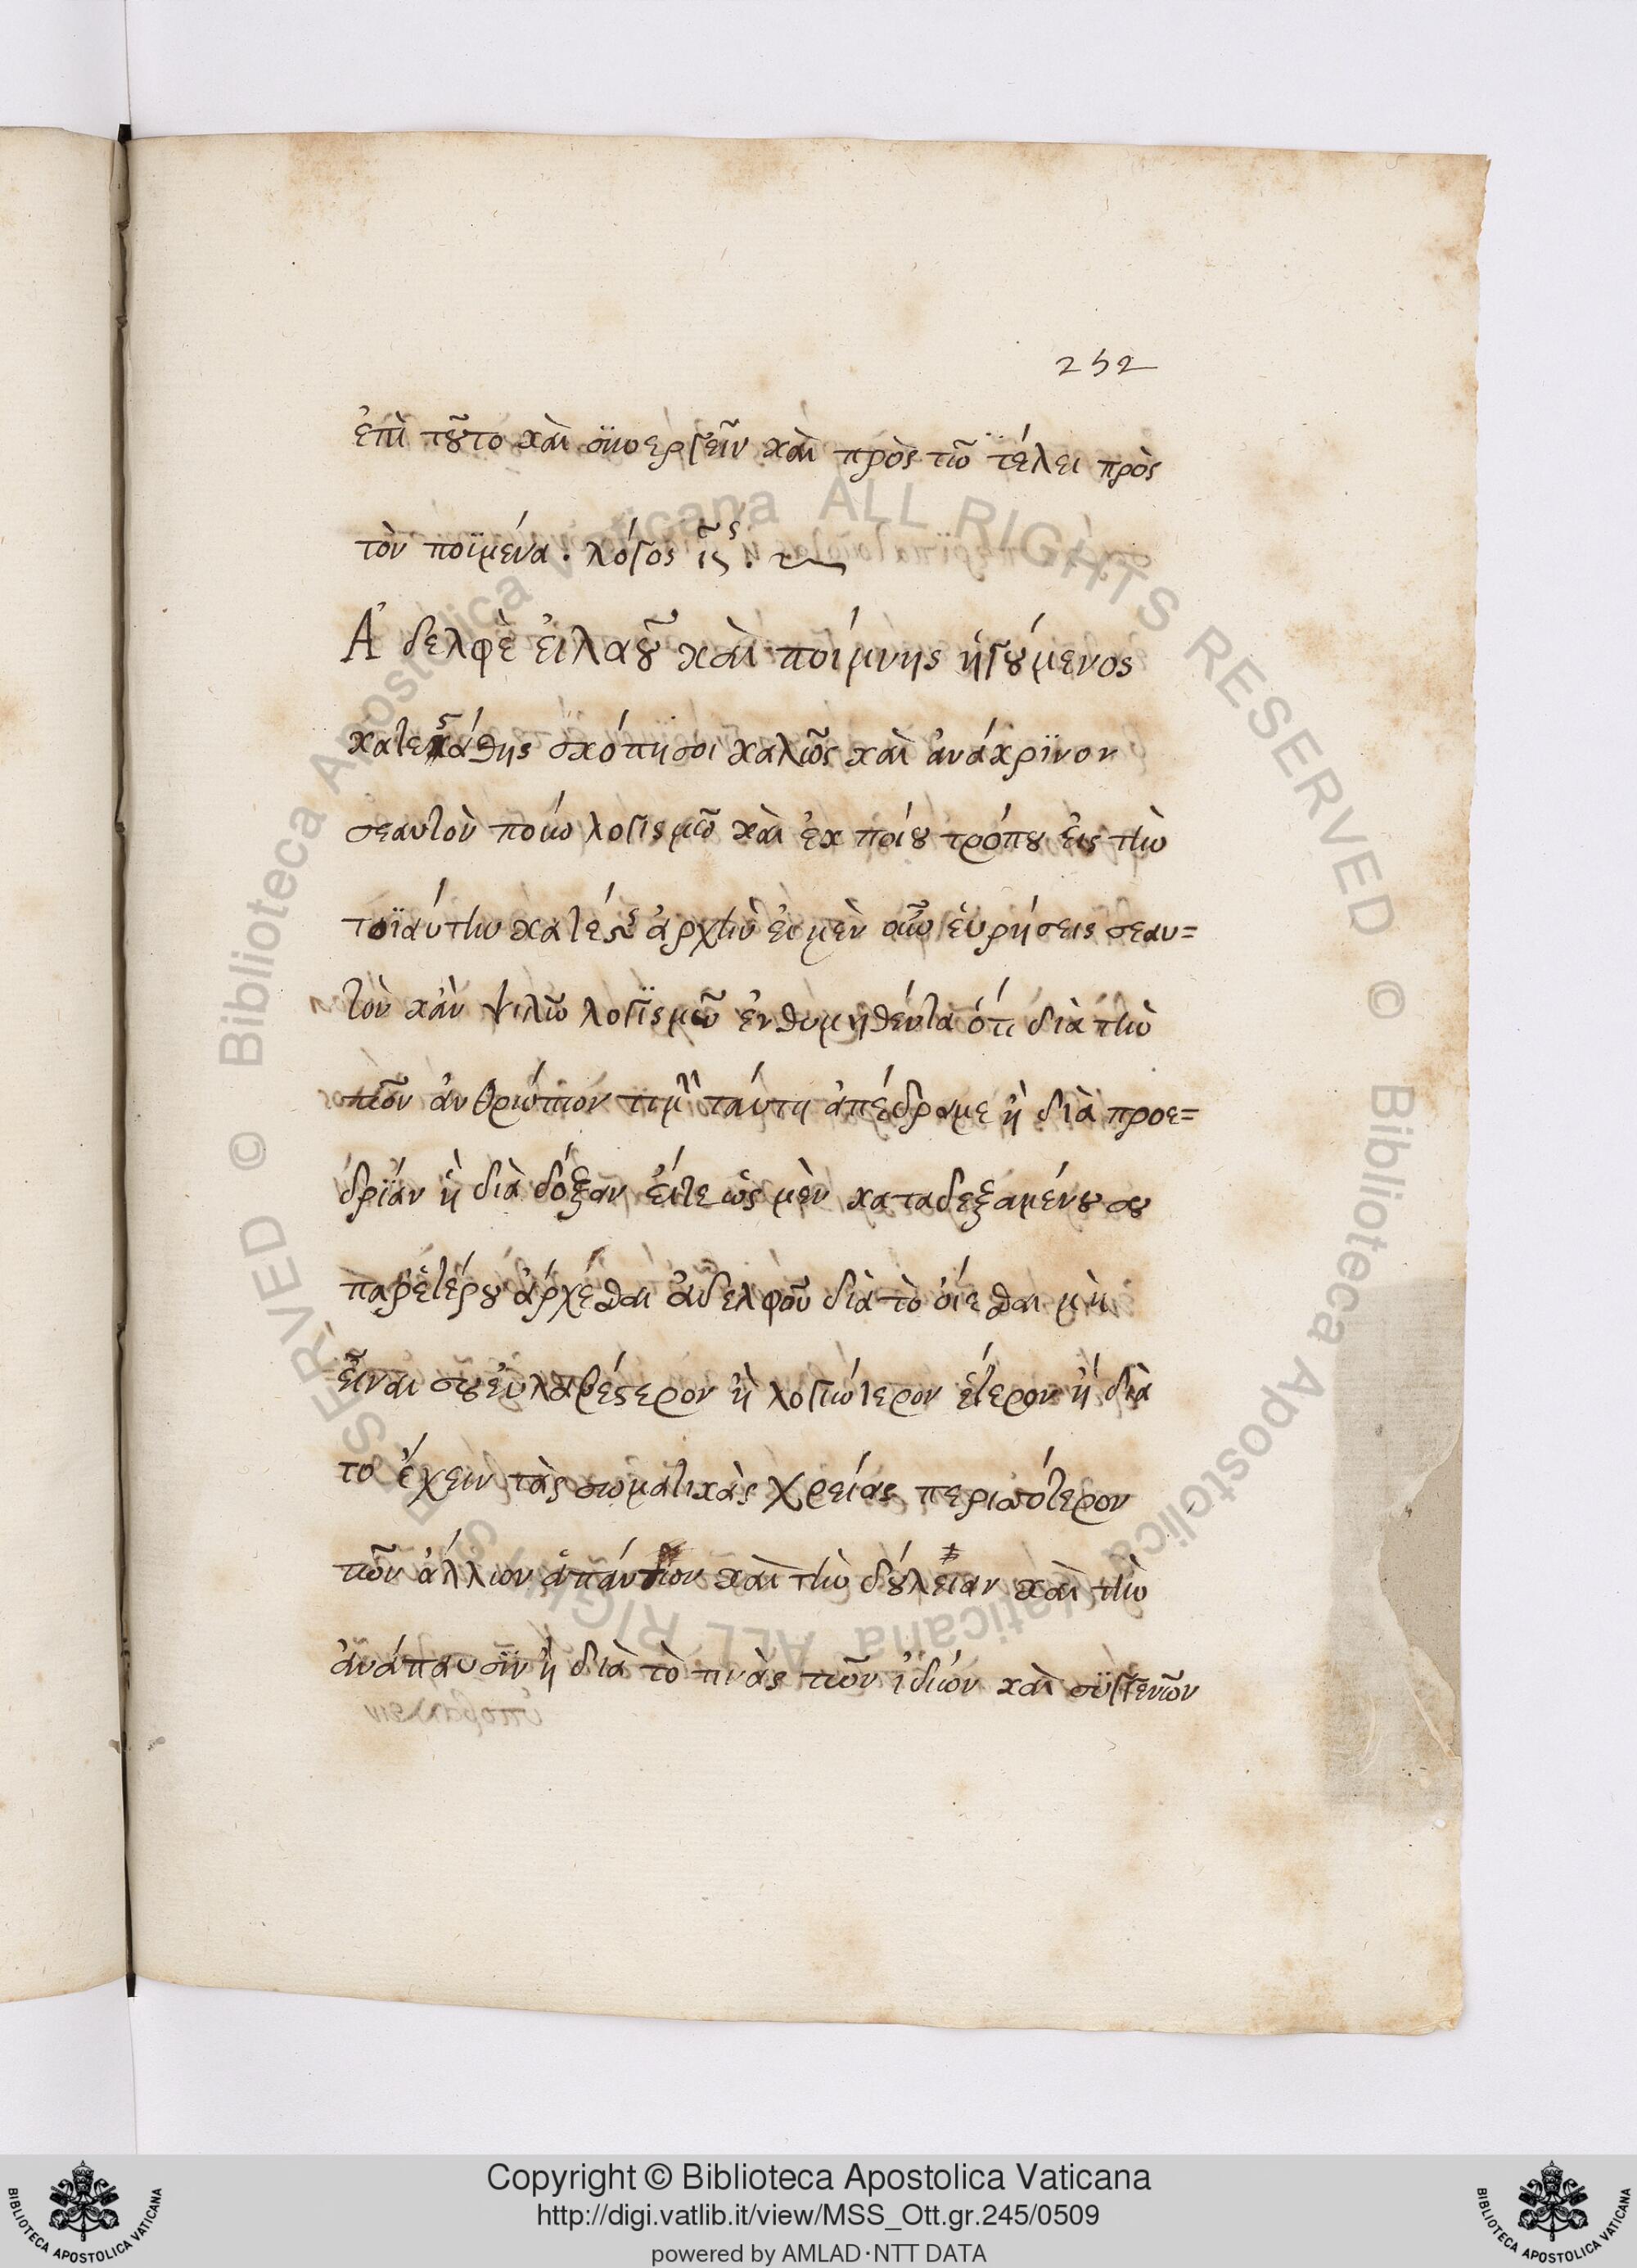 252
ἐπὶ τȣ͂το καὶ συνεργεῖν καὶ πρὸς τῶ τέλει πρὸς
τὸν ποϊμένα. λόγος ις͂ς.
Ἀδελφὲ εἰ λαȣ͂ καὶ ποίμνης ἡγȣ́μενος
κατεστάθης σκόπησοι καλῶς καὶ ἀνάκρϊνον
σεαυτὸν ποίω λογισμῶ καὶ ἐκ ποίȣ τρόπȣ εἰς τὴν
τοϊαύτην κατέστης ἀρχὴν εἰ μὲν οὖν εὑρήσεις σεαυ=
τὸν κἀν ψιλῶ λογϊσμῶ ἐνθυμηθέντα ὅτι διὰ τὴν
τῶν ἀνθρώπων τϊμὴ ταύτη ἀπέδραμε ἢ διὰ προε=
δρίαν ἢ διὰ δόξαν εἴτε ὡς μὲν καταδεξαμένȣ σȣ
παρ' ἑτέρȣ ἄρχέσθαι ἀδελφοῦ διὰ τὸ οἴεσθαι μὴ
εἶναι σȣ εὐλαβέστερον ἢ λογιώτερον ἕτερον ἢ διὰ
το ἔχειν τὰς σωματικὰς χρείας περισσότερον
τῶν ἄλλων ἁπάντων καὶ τὴν δȣ́λείαν καὶ τὴν
ἀνάπαυσϊν ἢ διὰ τὸ τινὰς τῶν ἰδιών καὶ σϋγγενῶν
Copyright © Biblioteca Apostolica Vaticana
http://digi.vatlib.it/view/MSS_Ott.gr.245/0509
powered by AMLAD·NTT DATA
BIBLIOTECA APOSTOLICA VATICANA
BIBLIOTECA APOSTOLICA VATICANA
© Biblioteca Apostolica Vaticana ALL RIGHTS RESERVED © Biblioteca Apostolica Vaticana ALL RIGHTS RESERVED